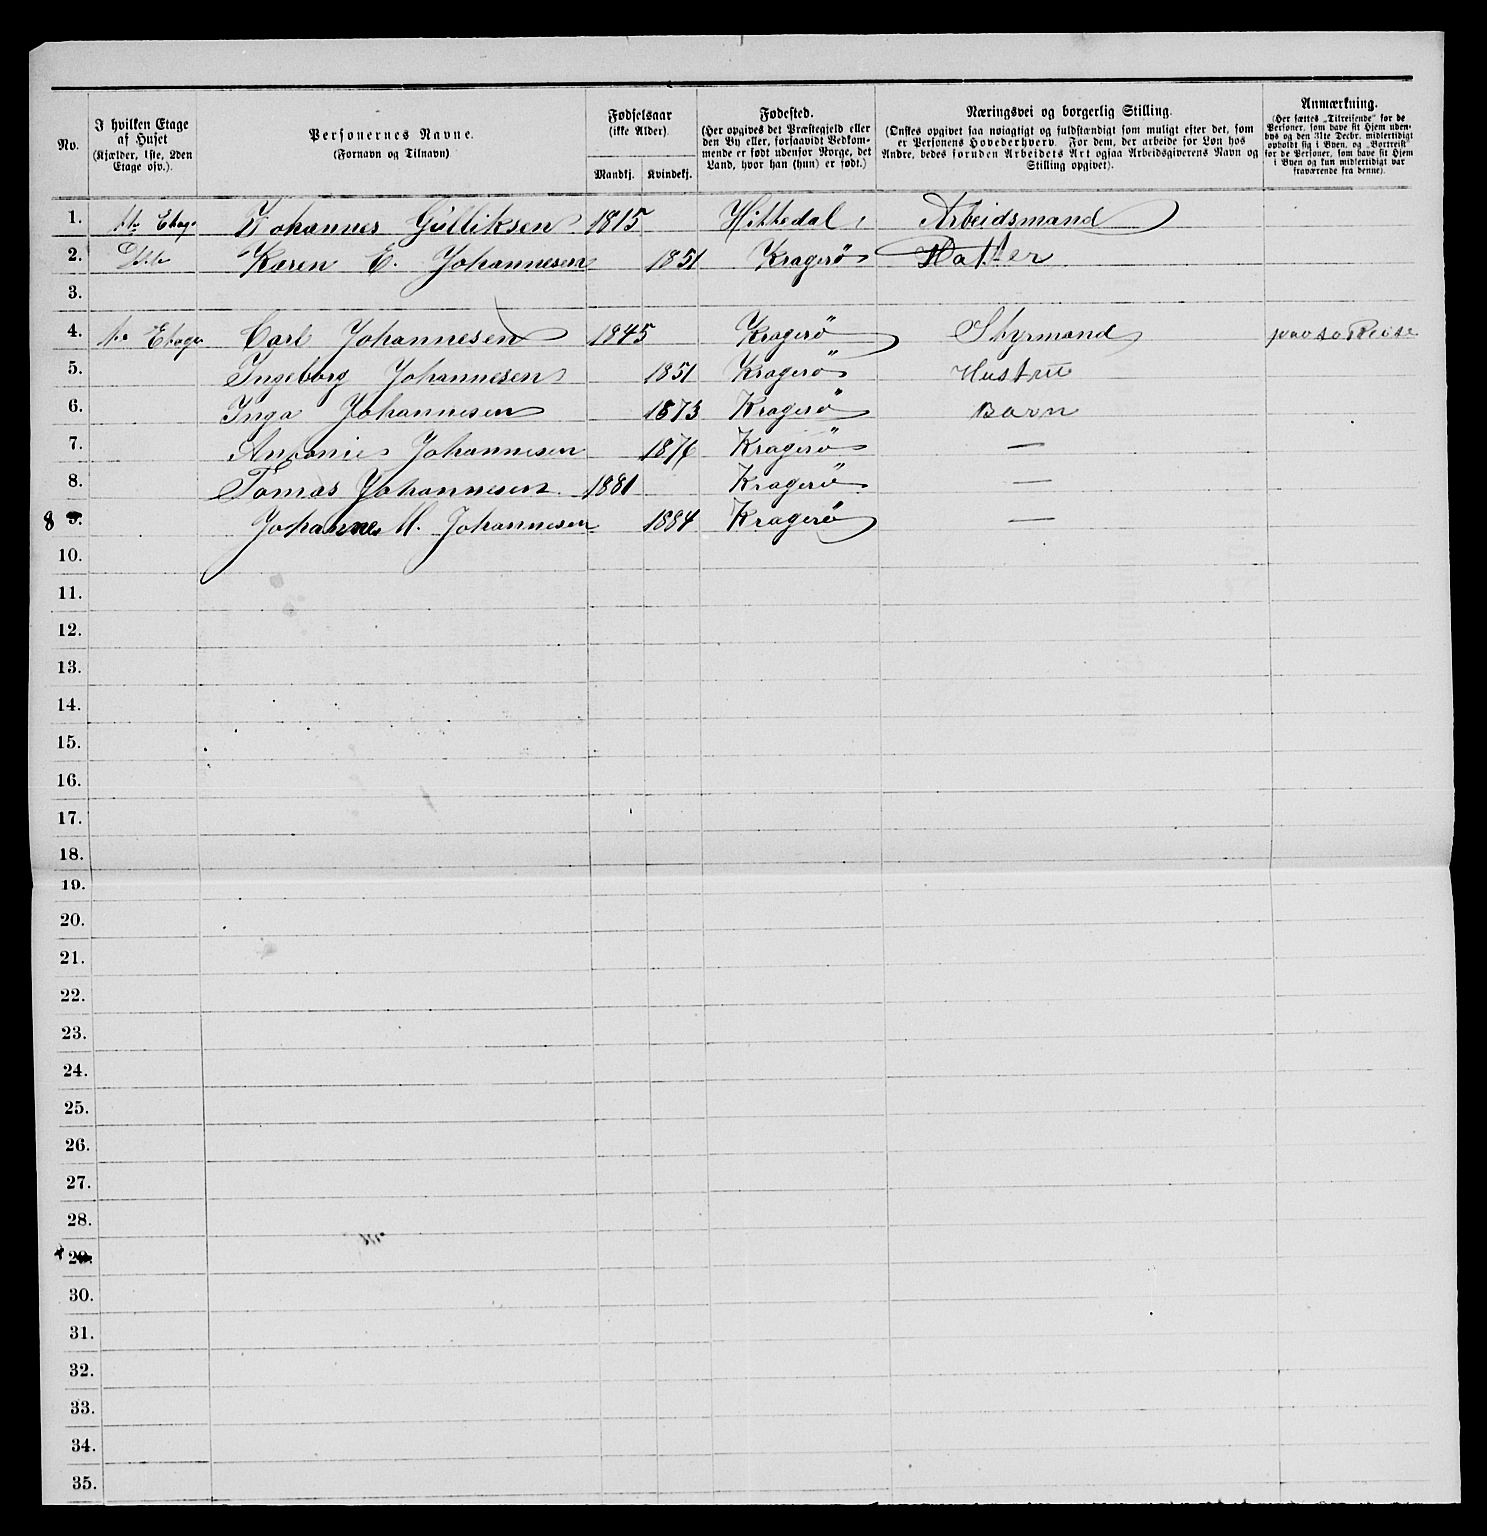 No.
I hvilken Etage af Huset (Kjælder, 1ste, 2den Etage osv.).
Personernes Navne. (Fornavn og Tilnavn)
Fødselsaar (ikke Alder).
Mandkj. Kvindekj.
Fødested. (Her opgives det Præstegjeld eller den By eller, forsaavidt Vedkommende er født udenfor Norge, det Land, hvor han (hun) er født.)
Næringsvei og borgerlig Stilling. (Ønskes opgivet saa nøiagtigt og fuldstændigt som muligt efter det, som er Personens Hovederhverv. For dem, der arbeide for Løn hos Andre, bedes foruden Arbeidets Art ogsaa Arbeidsgiverens Navn og Stilling opgivet).
Anmærkning. (Her sættes „Tilreisende" for de Personer, som have sit Hjem udenbys og den 31te Decbr. midlertidigt opholdt sig i Byen, og „Bortreist" for de Personer, som have sit Hjem i Byen og kun midlertidigt var fraværende fra denne).
1. 1te Etage Johannes Gulliksen 1815 Hittedal Arbeidsmand
2. Dito Karen E. Johannesen 1851 Kragerö Datter
3.
4. 1te Etage Carl Johannesen 1845 Kragerö Styrmand paa sø Reise
5. Ingeborg Johannesen 1851 Kragerö Hustru
6. Inga Johannesen 1873 Kragerö Barn
7. Antonie Johannesen 1876 Kragerö —
8. Tomas Johannesen 1881 Kragerö —
8 9. Johanne M. Johannesen 1884 Kragerö —
10.
11.
12.
13.
14.
15.
16.
17.
18.
19.
20.
21.
22.
23.
24.
25.
26.
27.
28.
29.
30.
31.
32.
33.
34.
35.